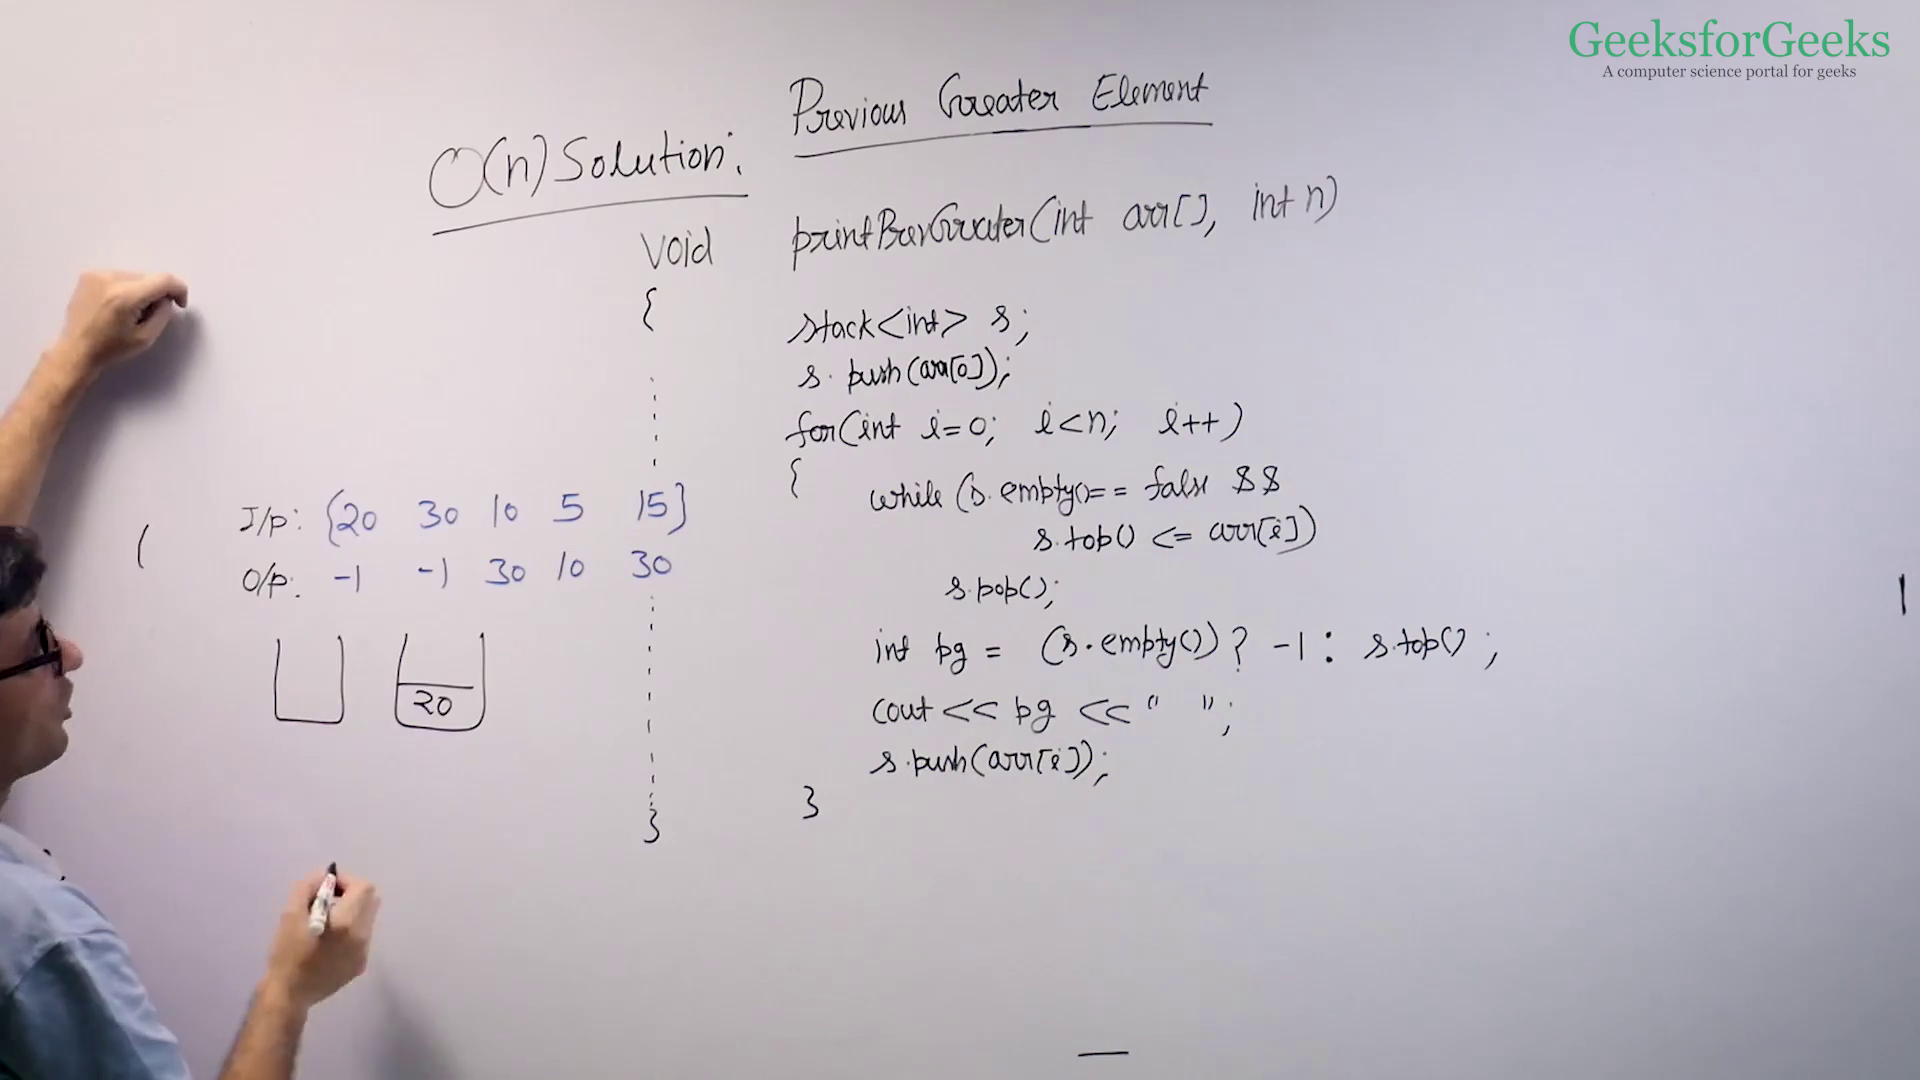 GeeksforGeeks
A computer science portal for geeks
Previous Greater Element
O(n) Solution:
void printPrevGreater(int arr[], int n)
{
stack<int> s;
s.push(arr[0]);
for(int i=0; i<n; i++)
{
while (s.empty()== false &&
s.top() <= arr[i])
s.pop();
int pg = (s.empty()) ? -1 : s.top() ;
cout << pg << " ";
s.push(arr[i]);
}
}
I/p: {20 30 10 5 15}
O/p: -1 -1 30 10 30
20
(